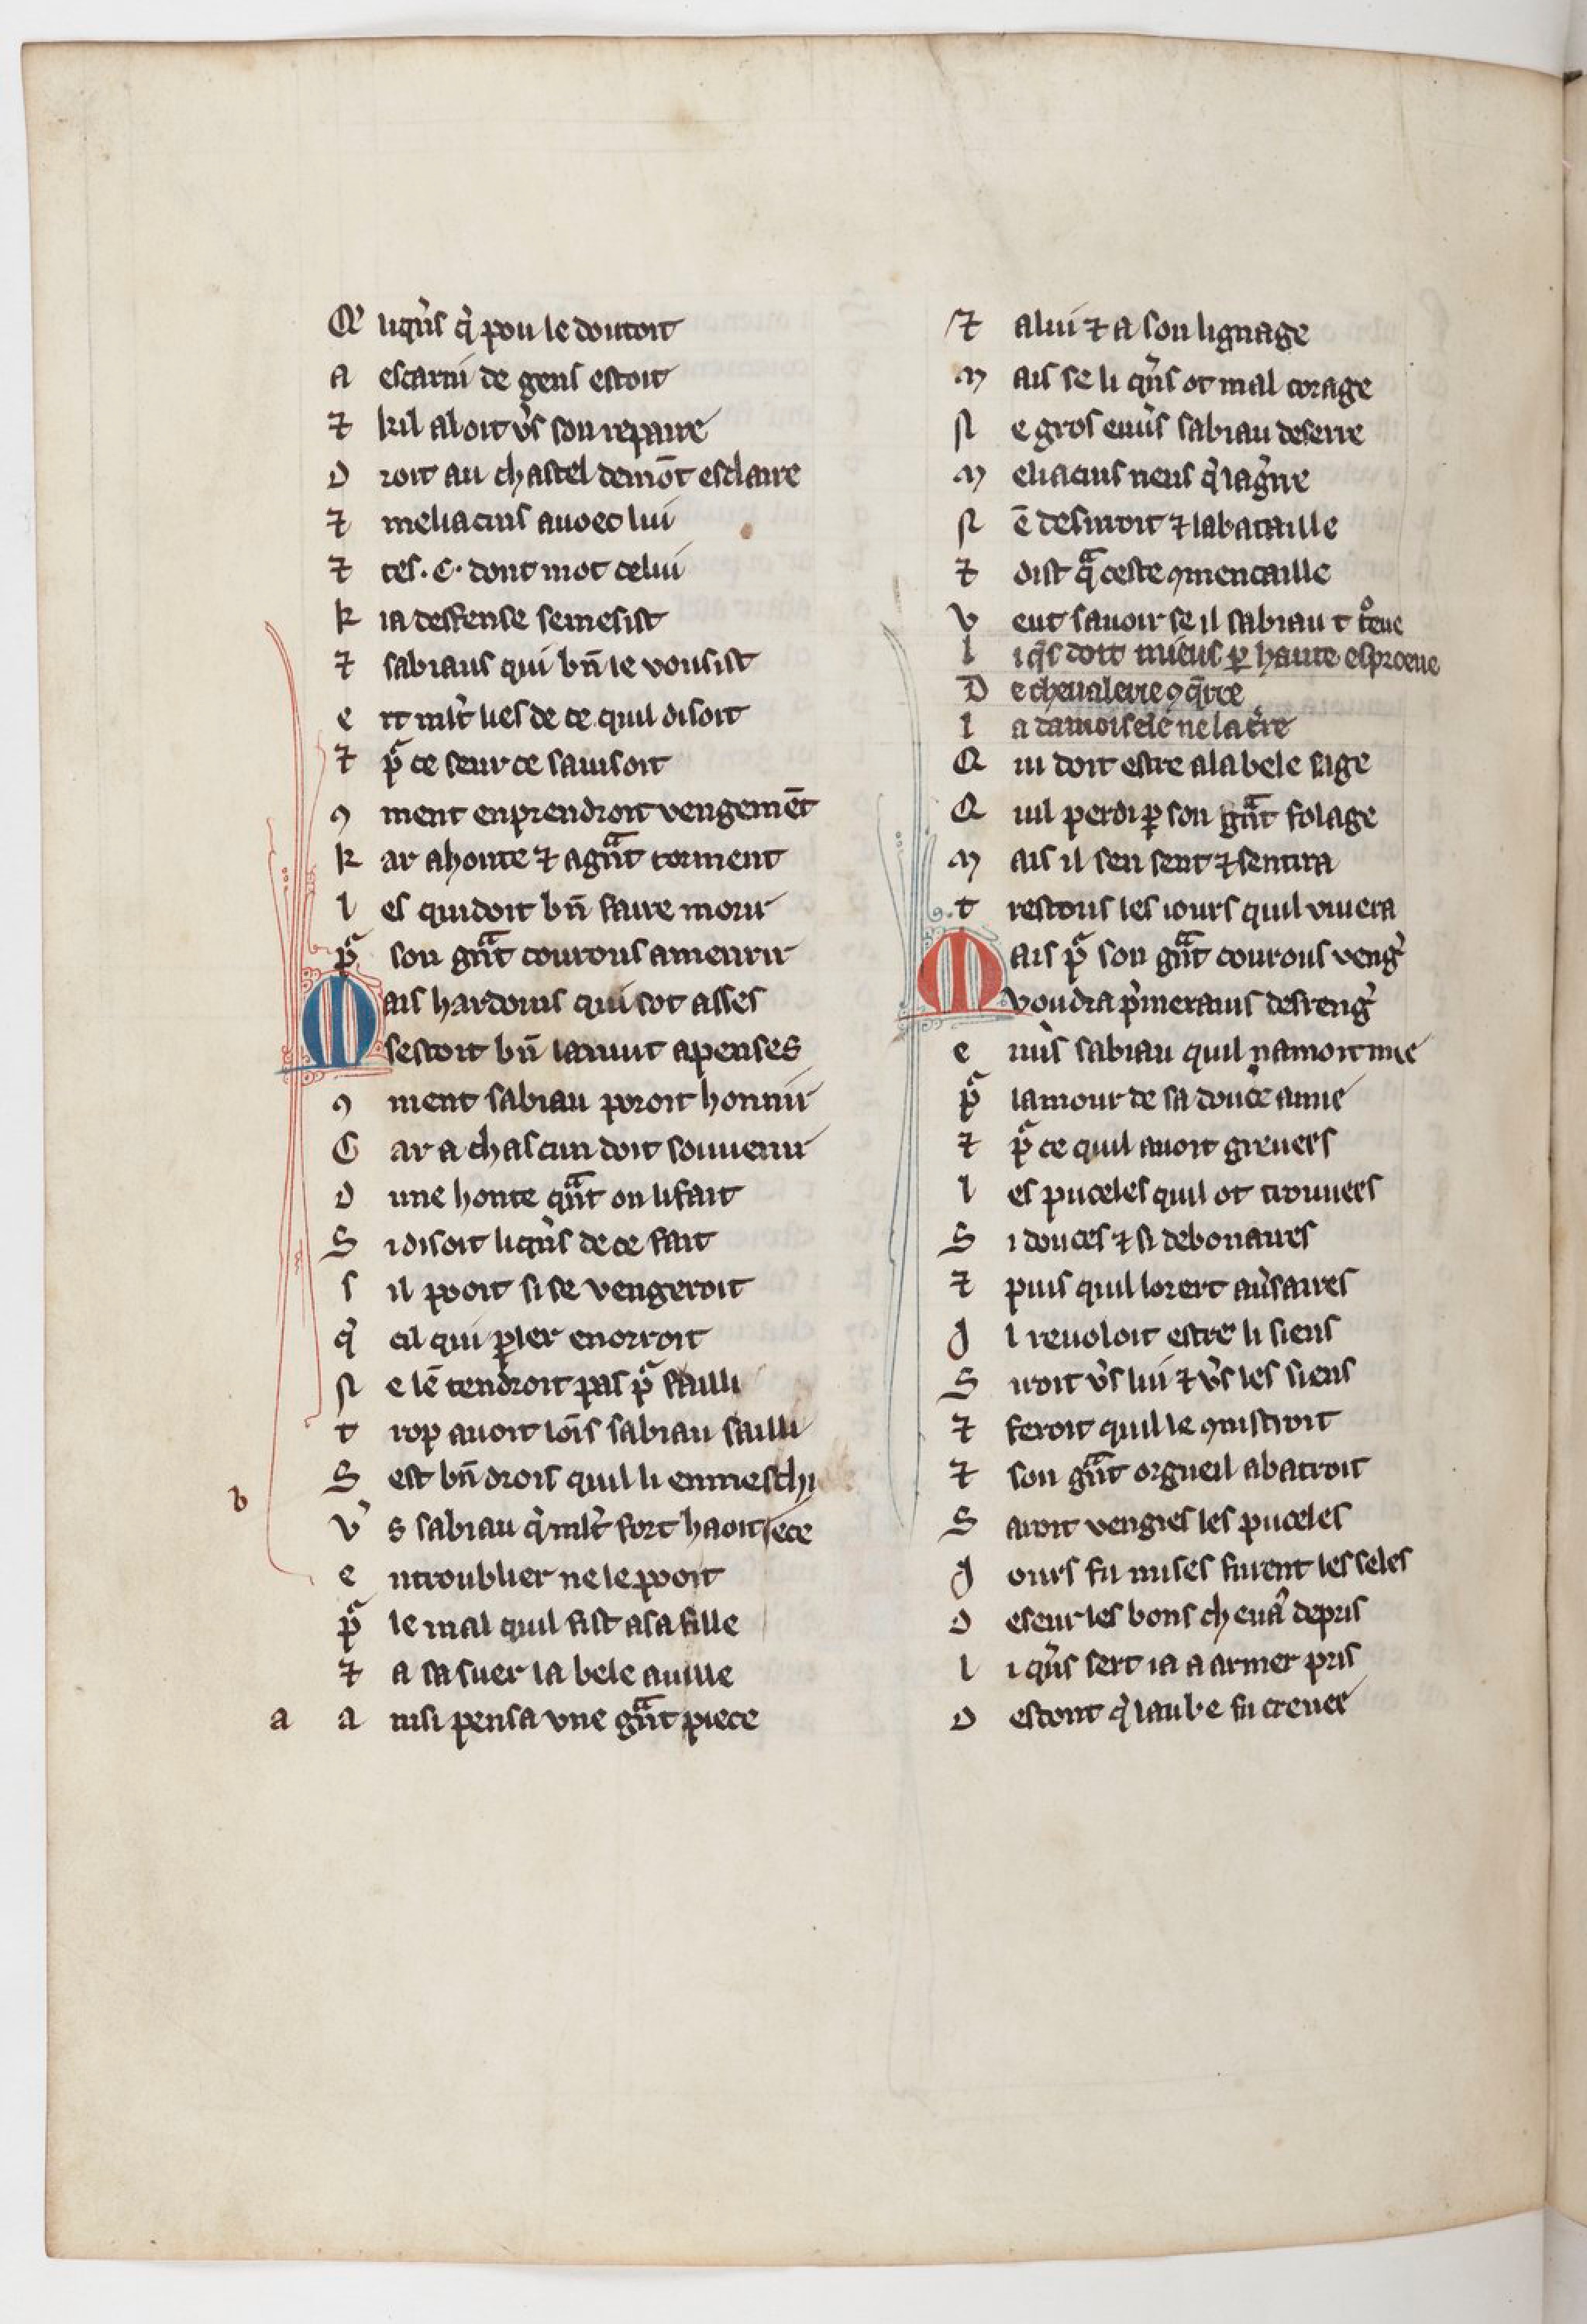 Q' liqu̾s q̾ pou le doutoit
A escarni de gens estoit
⁊ kil aloit v̾s son repaire
D roit au chastel demōt esclaire
⁊ meliacins auoec lui
⁊ tes .C. dont mot celui
K ia desfense se mesist
⁊ sabiaus qui bn̄ le vousist
E rt ml̾t lies de ce quil disoit
⁊ pᵃ ce seur ce sauisoit
ꝯ ment enprendroit vengemēt
K ar a honte ⁊ a gᵃnt torment
l es quidoit bn̄ faire morir
pᵃ son gᵃnt courous amenrir
M ais hardouis qui sot asses
sestoit bn̄ la nuit apenses
ꝯ ment sabiau poroit honnir
C ar a chascun doit souuenir
D une honte qᵃnt on li fait
S i disoit li qu̾ns de ce fait
s il pooit si se vengeroit
q̾ cil qui ꝑler en orroit
N e lē tendroit pas pᵃ failli
t rop auoit lōs sabiau sailli
S est bn̄ drois quil li enmeschi
ece
V̾ s sabiau q̾ ml̾t fort haoit
b
e ntroublier ne le pooit
pᵃ le mal quil fist a sa fille
⁊ a sa suer la bele auille
a
a nisi pensa vne gᵃnt piece
⁊ a lui ⁊ a son lignage
M ais se li qu̾ns ot mal corage
N e gros enu̾s sabiau deserre
M eliacins neus q̾ la gu̾re
N ē desiroit ⁊ la bataille
⁊ dist qᵃ ceste ꝯmencaille
V eut sauoir se il sabiau t tᵒeue
l i qls doit mieus ꝑ haute esproeue
D e cheualerie ꝯq̄rre
l a damoisele ne la t̾re
Q ui doit estre a la bele sage
Q uil perdi ꝑ son gᵃnt folage
M ais il sen sent ⁊ sentira
t restous les iours quil viuera
M ais pᵃ son gᵃnt courous veng̾
voudra p̾merains desreng̾
e nu̾s sabiau quil namoit mie
pᵃ lamour de sa douce amie
⁊ pᵃ ce quil auoit greuees
l es puceles quil ot trouuees
S i douces ⁊ si debonaires
⁊ puis quil lor ert au̾saires
J l reuoloit estre li siens
S iroit v̾s lui ⁊ v̾s les siens
⁊ feroit quil le ꝯnistroit
⁊ son gᵃnt orgueil abatroit
S aroit vengies les puceles
J ours fu mises furent les seles
D eseur les bons cheuᵃ de pris
l i qu̾ns sert ia a armer pris
D estont q̾ laube fu creuee